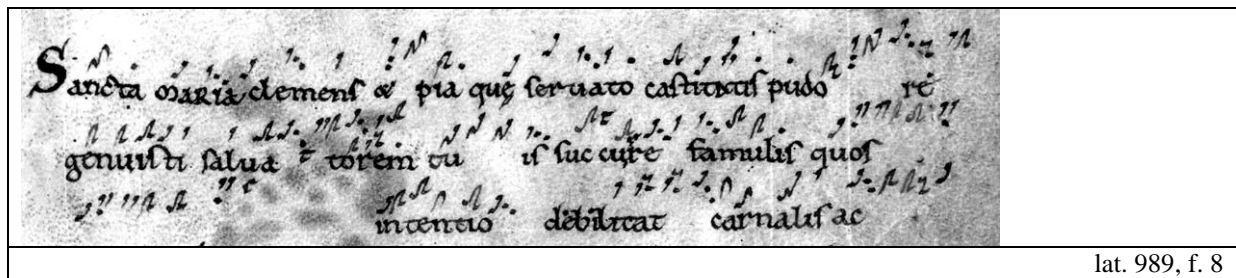 Sancta MARIA clemens & pia quę seruato castitatis pudo re
genuisti salua torem tu is succure famulis quos
intentio debilitat carnalis ac
lat. 989, f. 8